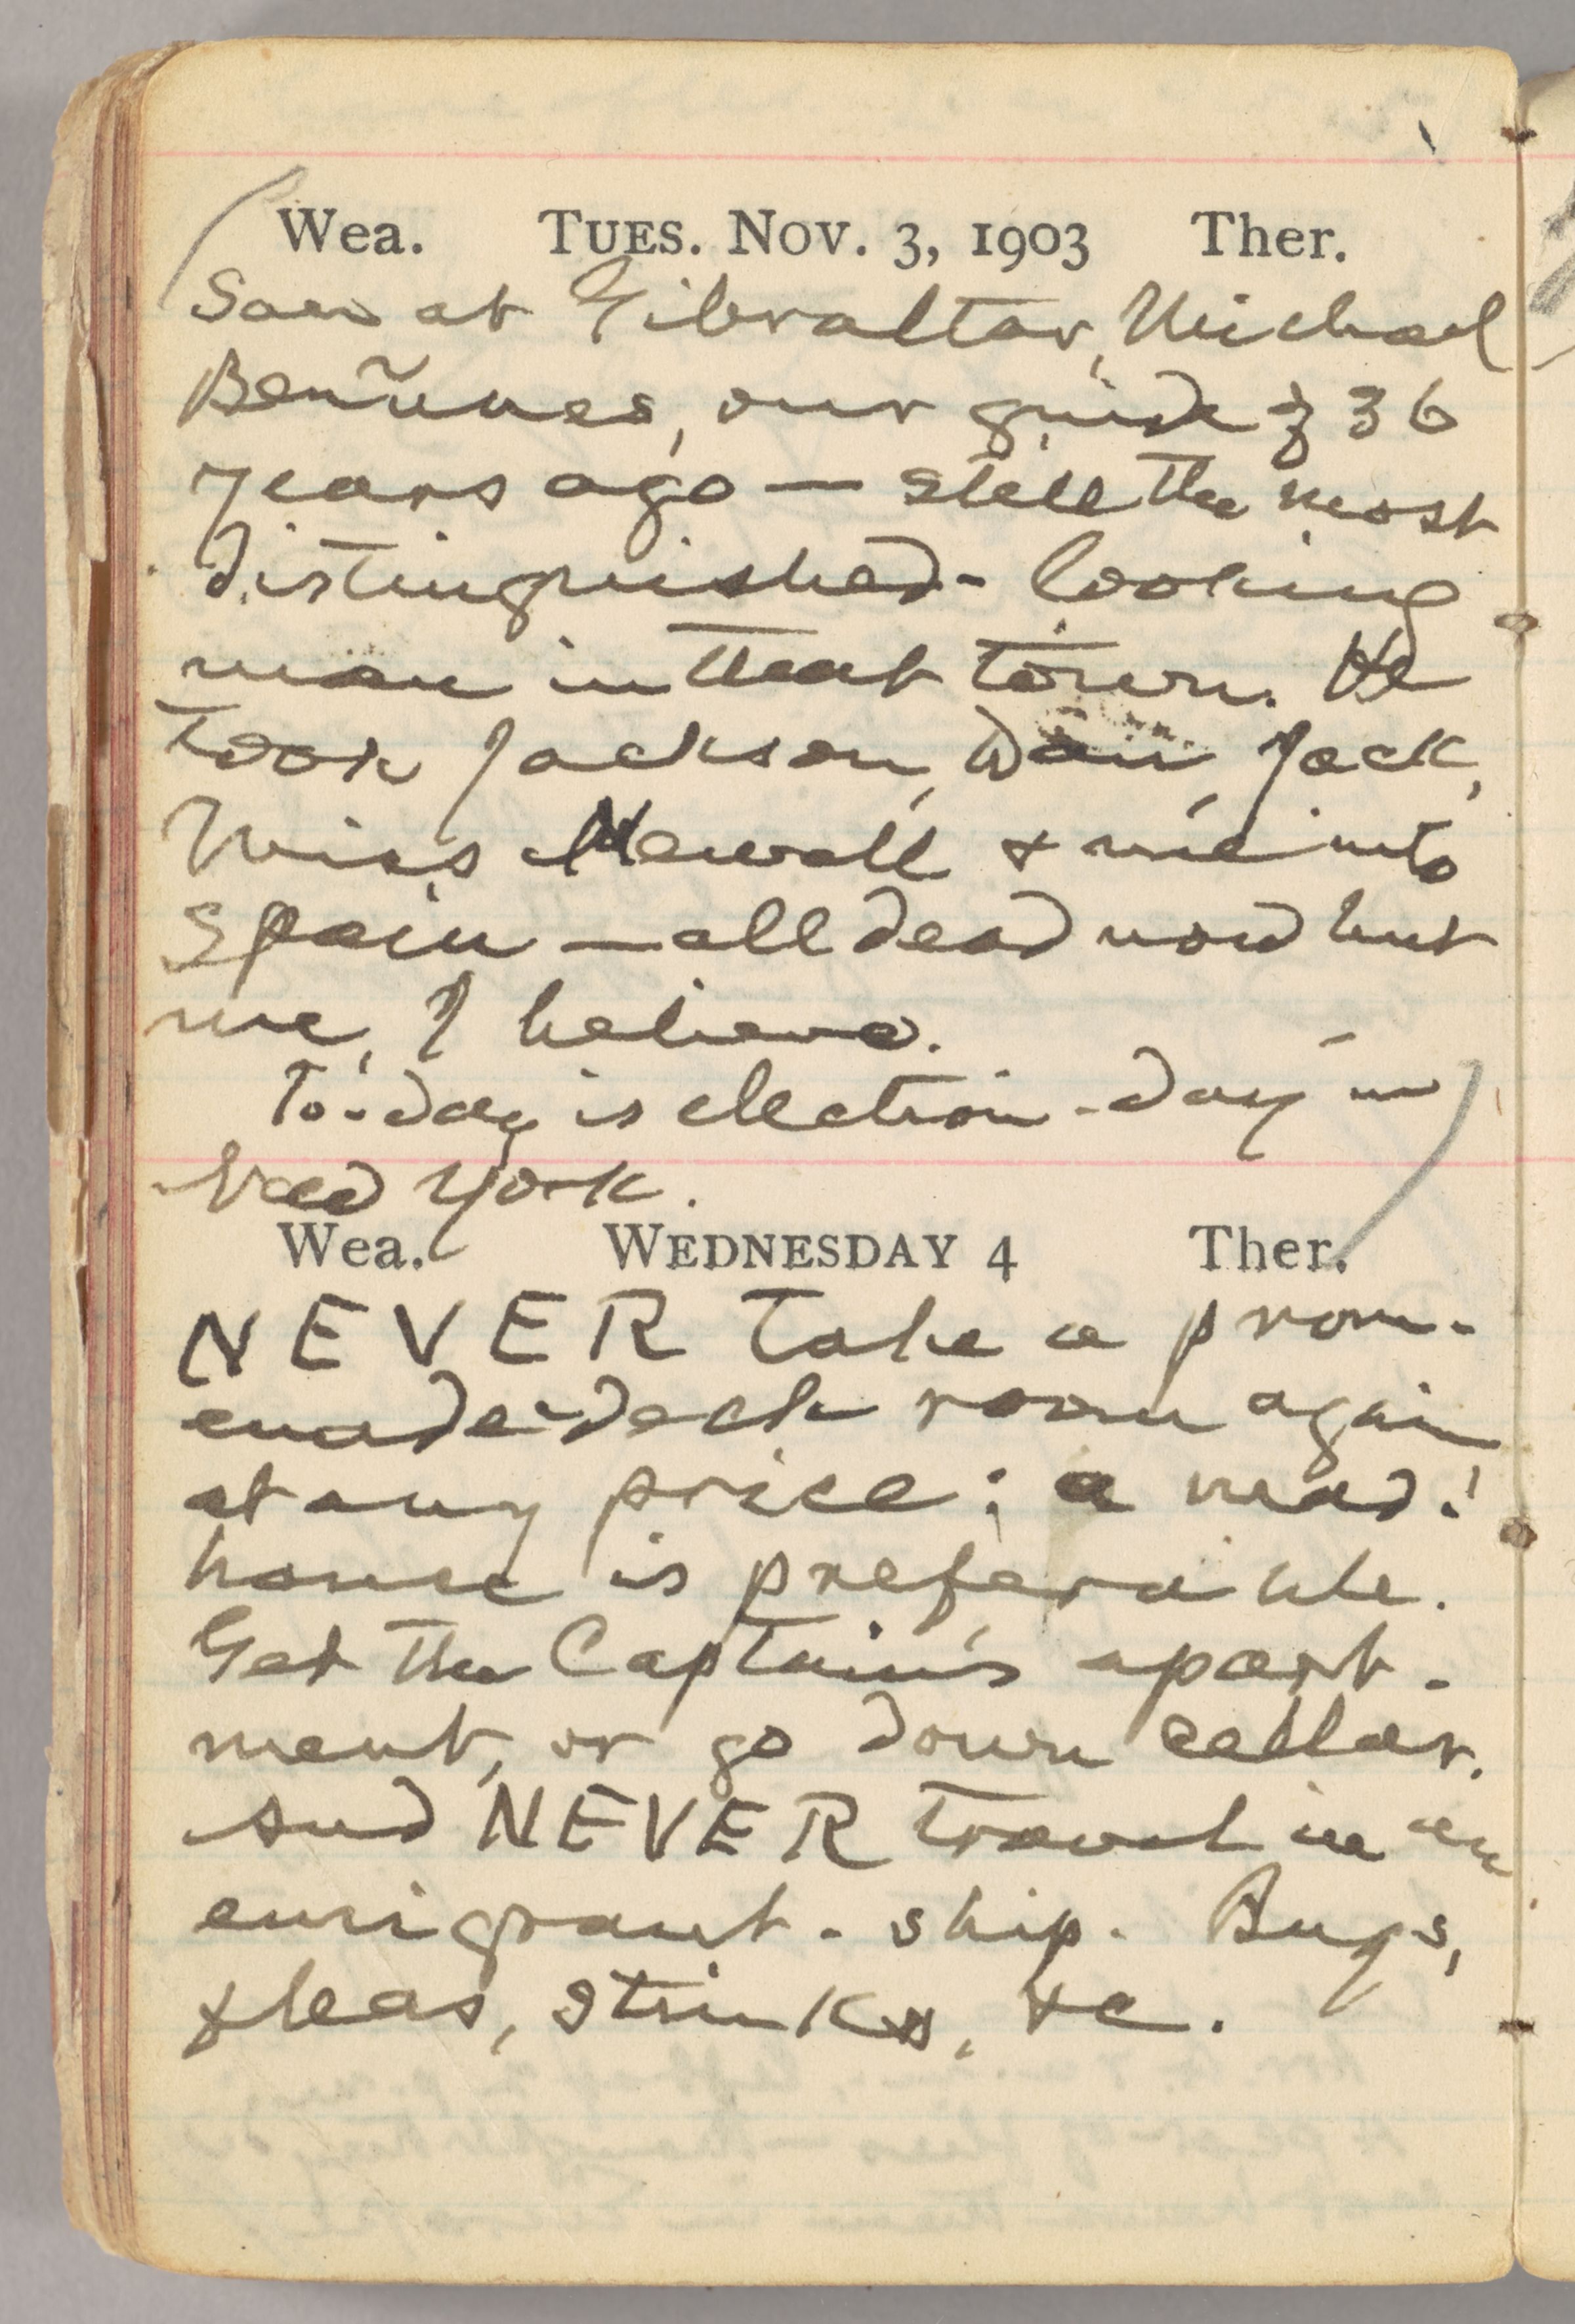 Wea. TUES. NOV. 3, 1903 Ther.
Saw at Gibraltar, Michael
Benunes, our guide of 36
years ago — still the most
distinguished-looking
man in that town. He
took Jackson, Dan, Jack,
Miss Newell & me into
Spain — all dead now but
me, I believe.
To-day is election-day in
New York.
Wea. WEDNESDAY 4 Ther.
NEVER take a prom-
enade-deck room again
at any price; a mad-
house is preferable.
Get the Captain's apart-
ment, or go down cellar.
And NEVER travel in an
emigrant-ship. Bugs,
fleas, stinks, &c.